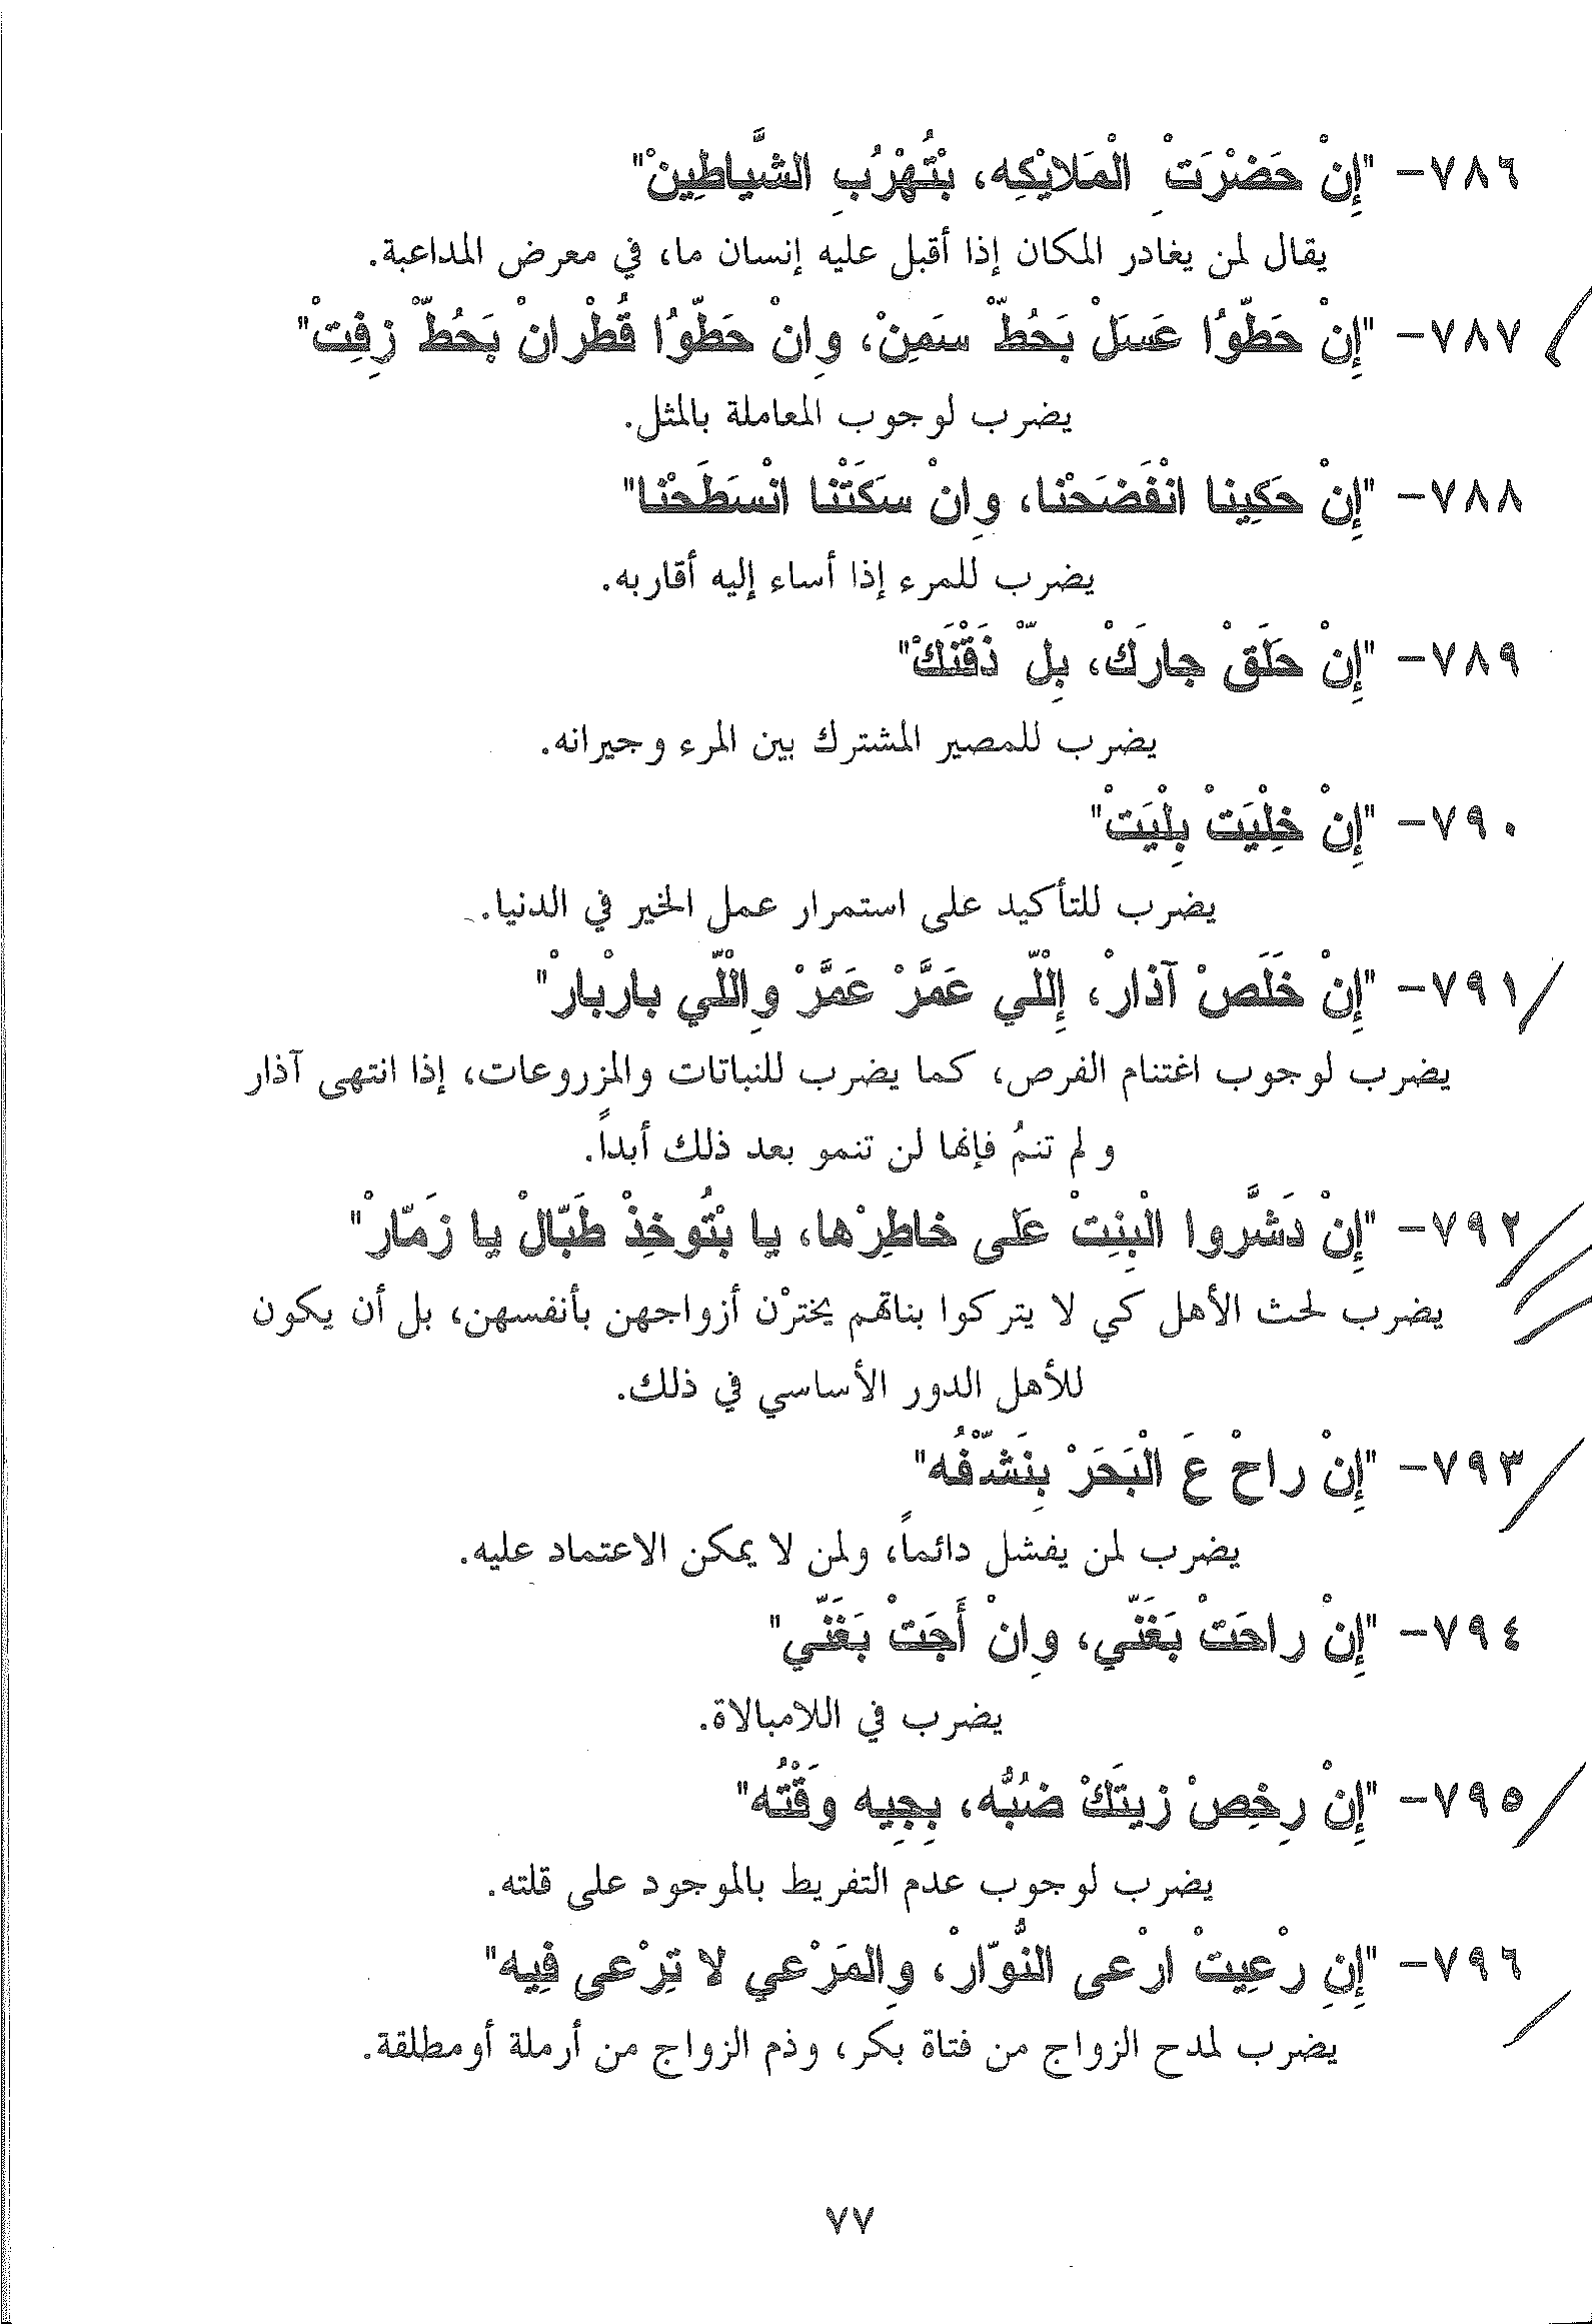 ٧٨٦- "إِنْ حَضْرَتْ الْمَلايْكِه، بْتُهْرُبِ الشَّياطِينْ"
يقال لمن يغادر المكان إذا أقبل عليه إنسان ما، في معرض المداعبة.
٧٨٧- "إِنْ حَطّوُا عَسَلْ بَحُطّْ سَمِنْ، وِانْ حَطّوُا قُطْرانْ بَحُطّْ زِفِتْ"
يضرب لوجوب المعاملة بالمثل.
٧٨٨- "إِنْ حَكِينا انْفَضَحْنا، وِانْ سكَتْنا انْسَطَحْنا"
يضرب للمرء إذا أساء إليه أقاربه.
٧٨٩- "إِنْ حَلَقْ جارَكْ، بِلّْ ذَقْنَكْ"
يضرب للمصير المشترك بين المرء وجيرانه.
٧٩٠- "إِنْ خِلْيَتْ بِلْيَتْ"
يضرب للتأكيد على استمرار عمل الخير في الدنيا.
٧٩١- "إِنْ خَلَصْ آذارْ، إِلْلّي عَمَّرْ عَمَّرْ وِالْلّي بارْبارْ"
يضرب لوجوب اغتنام الفرص، كما يضرب للنباتات والمزروعات، إذا انتهى آذار
و لم تنمُ فإنها لن تنمو بعد ذلك أبداً.
٧٩٢- "إِنْ دَشَّروا الْبِنِتْ عَلى خاطِرْها، يا بْتُوخِذْ طَبّالْ يا زَمّارْ"
يضرب لحث الأهل كي لا يتركوا بناتهم يخترْن أزواجهن بأنفسهن، بل أن يكون
للأهل الدور الأساسي في ذلك.
٧٩٣- "إِنْ راحْ عَ الْبَحَرْ بِنَشّْفُه"
يضرب لمن يفشل دائماً، ولمن لا يمكن الاعتماد عليه.
٧٩٤- "إِنْ راحَتْ بَغَنّي، وِانْ أَجَتْ بَغَنّي"
يضرب في اللامبالاة.
٧٩٥- "إِنْ رِخِصْ زيتَكْ ضُبُّه، بِجِيه وَقْتُه"
يضرب لوجوب عدم التفريط بالموجود على قلته.
٧٩٦- "إِنِ رْعِيتْ ارْعى النُّوّارْ، وِالمَرْعي لا تِرْعى فِيه"
يضرب لمدح الزواج من فتاة بكر، وذم الزواج من أرملة أومطلقة.
٧٧